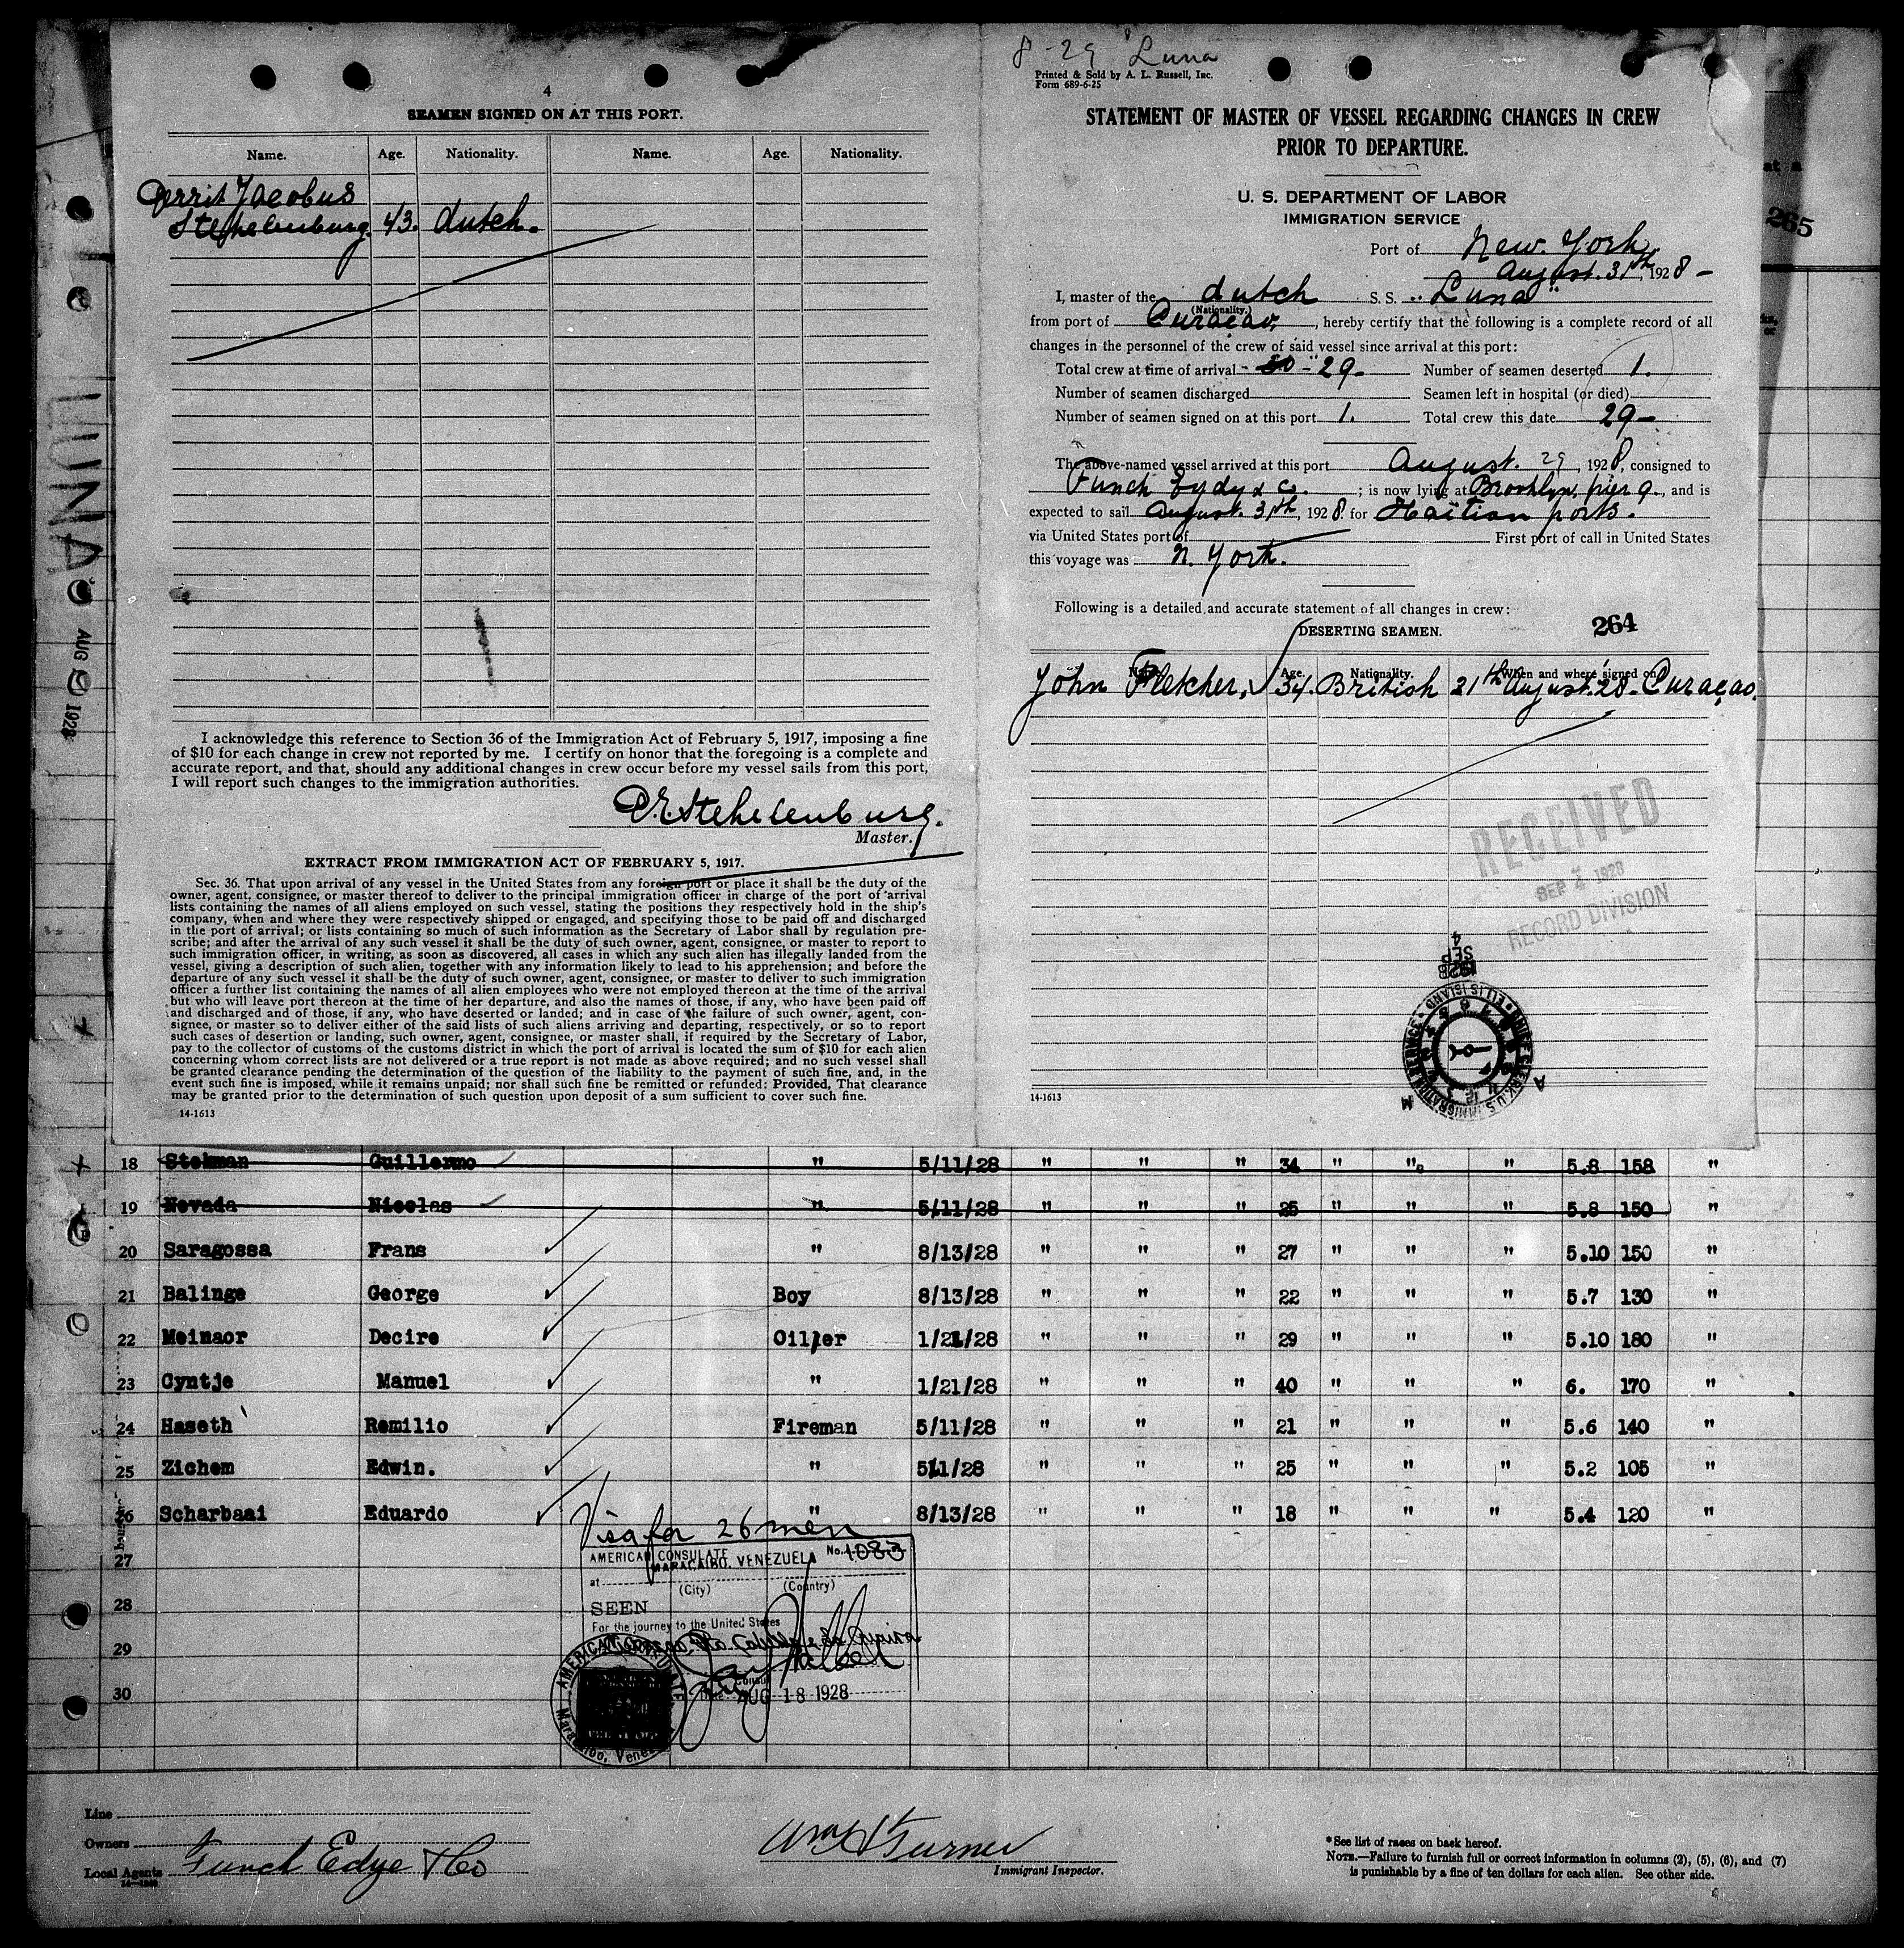 4
SEAMEN SIGNED ON AT THIS PORT.
Name. Age. Nationality. Name. Age. Nationality.
Gerrit Jacobus
Stehelenburg. 43. dutch.
I acknowledge this reference to Section 36 of the Immigration Act of February 5, 1917, imposing a fine
of $10 for each change in crew not reported by me. I certify on honor that the foregoing is a complete and
accurate report, and that, should any additional changes in crew occur before my vessel sails from this port,
I will report such changes to the immigration authorities.
Stehelenburg.
Master.
EXTRACT FROM IMMIGRATION ACT OF FEBRUARY 5, 1917.
Sec. 36. That upon arrival of any vessel in the United States from any foreign port or place it shall be the duty of the
owner, agent, consignee, or master thereof to deliver to the principal immigration officer in charge of the port of arrival
lists containing the names of all aliens employed on such vessel, stating the positions they respectively hold in the ship's
company, when and where they were respectively shipped or engaged, and specifying those to be paid off and discharged
in the port of arrival; or lists containing so much of such information as the Secretary of Labor shall by regulation pre-
scribe; and after the arrival of any such vessel it shall be the duty of such owner, agent, consignee, or master to report to
such immigration officer, in writing, as soon as discovered, all cases in which any such alien has illegally landed from the
vessel, giving a description of such alien, together with any information likely to lead to his apprehension; and before the
departure of any such vessel it shall be the duty of such owner, agent, consignee, or master to deliver to such immigration
officer a further list containing the names of all alien employees who were not employed thereon at the time of the arrival
but who will leave port thereon at the time of her departure, and also the names of those, if any, who have been paid off
and discharged and of those, if any, who have deserted or landed; and in case of the failure of such owner, agent, con-
signee, or master so to deliver either of the said lists of such aliens arriving and departing, respectively, or so to report
such cases of desertion or landing, such owner, agent, consignee, or master shall, if required by the Secretary of Labor,
pay to the collector of customs of the customs district in which the port of arrival is located the sum of $10 for each alien
concerning whom correct lists are not delivered or a true report is not made as above required; and no such vessel shall
be granted clearance pending the determination of the question of the liability to the payment of such fine, and, in the
event such fine is imposed, while it remains unpaid; nor shall such fine be remitted or refunded: Provided, That clearance
may be granted prior to the determination of such question upon deposit of a sum sufficient to cover such fine.
14-1613
LUNA
AUG 1928
8-29 "Luna
Printed & Sold by A. L. Russell, Inc.
Form 689-6-25
STATEMENT OF MASTER OF VESSEL REGARDING CHANGES IN CREW
PRIOR TO DEPARTURE.
U. S. DEPARTMENT OF LABOR
IMMIGRATION SERVICE
Port of New. York
August. 31th, 1928-
I, master of the dutch S. S. "Luna"
(Nationality.)
from port of Curaçao, hereby certify that the following is a complete record of all
changes in the personnel of the crew of said vessel since arrival at this port:
Total crew at time of arrival - 29- Number of seamen deserted 1.
Number of seamen discharged Seamen left in hospital (or died)
Number of seamen signed on at this port 1. Total crew this date 29-
The above-named vessel arrived at this port August. 29, 1928, consigned to
Funch Eydy & Co. ; is now lying at Brooklyn, pier 9., and is
expected to sail August. 31th, 1928. for Haitian ports.
via United States port of First port of call in United States
this voyage was N. York.
Following is a detailed and accurate statement of all changes in crew:
DESERTING SEAMEN. 264
Name. Age. Nationality. When and where signed on
John Fletcher, 34. British 21th August. 28. Curaçao.
RECEIVED
SEP 4 1928
RECORD DIVISION
SEP 4
1928
14-1613
265
18 Stekman Guillermo " 5/11/28 " " " 34 " " " 5.8 158 "
19 Nevada Nicolas " 5/11/28 " " " 25 " " " 5.8 150 "
20 Saragossa Frans " 8/13/28 " " " 27 " " " 5.10 150 "
21 Balinge George Boy 8/13/28 " " " 22 " " " 5.7 130 "
22 Meinaor Decire Oiller 1/21/28 " " " 29 " " " 5.10 180 "
23 Cyntje Manuel " 1/21/28 " " " 40 " " " 6. 170 "
24 Haseth Remilio Fireman 5/11/28 " " " 21 " " " 5.6 140 "
25 Zichem Edwin. " 5/11/28 " " " 25 " " " 5.2 105 "
26 Scharbaai Eduardo " 8/13/28 " " " 18 " " " 5.4 120 "
27
28
29
30
Visa for 26 men
AMERICAN CONSULATE No. 1083
at MARACAIBO, VENEZUELA
(City) (Country)
SEEN
For the journey to the United States
Consul
Date AUG 18 1928
AMERICAN CONSULATE
Maracaibo, Venezuela
Line
Owners
Local Agents Funch Edye & Co
Wm Turner
Immigrant Inspector.
*See list of races on back hereof.
NOTE.—Failure to furnish full or correct information in columns (2), (5), (6), and (7)
is punishable by a fine of ten dollars for each alien. See other side.